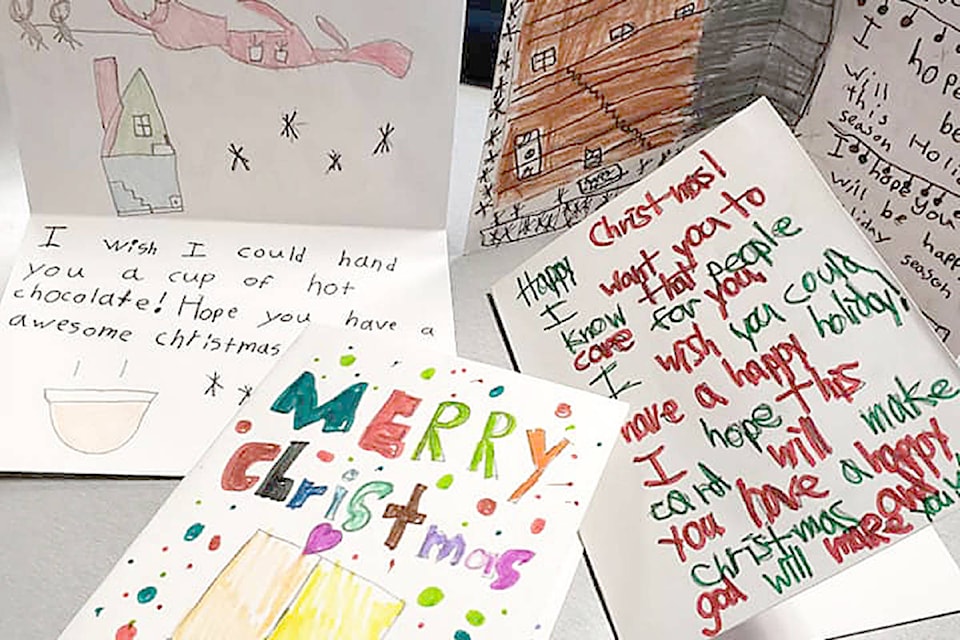 I wish I could hand
you a cup of hot
chocolate! Hope you have a
awesome christmas
MERRY
Christmas
Christmas!
Happy want you to
I that people
know for you,
care wish you could
I a happy holiday!
have hope this
I will make
card have a happy
you christmas and
god will make you
I hope
Will be
this
season Holi
I hope you
will be happ
liday
season